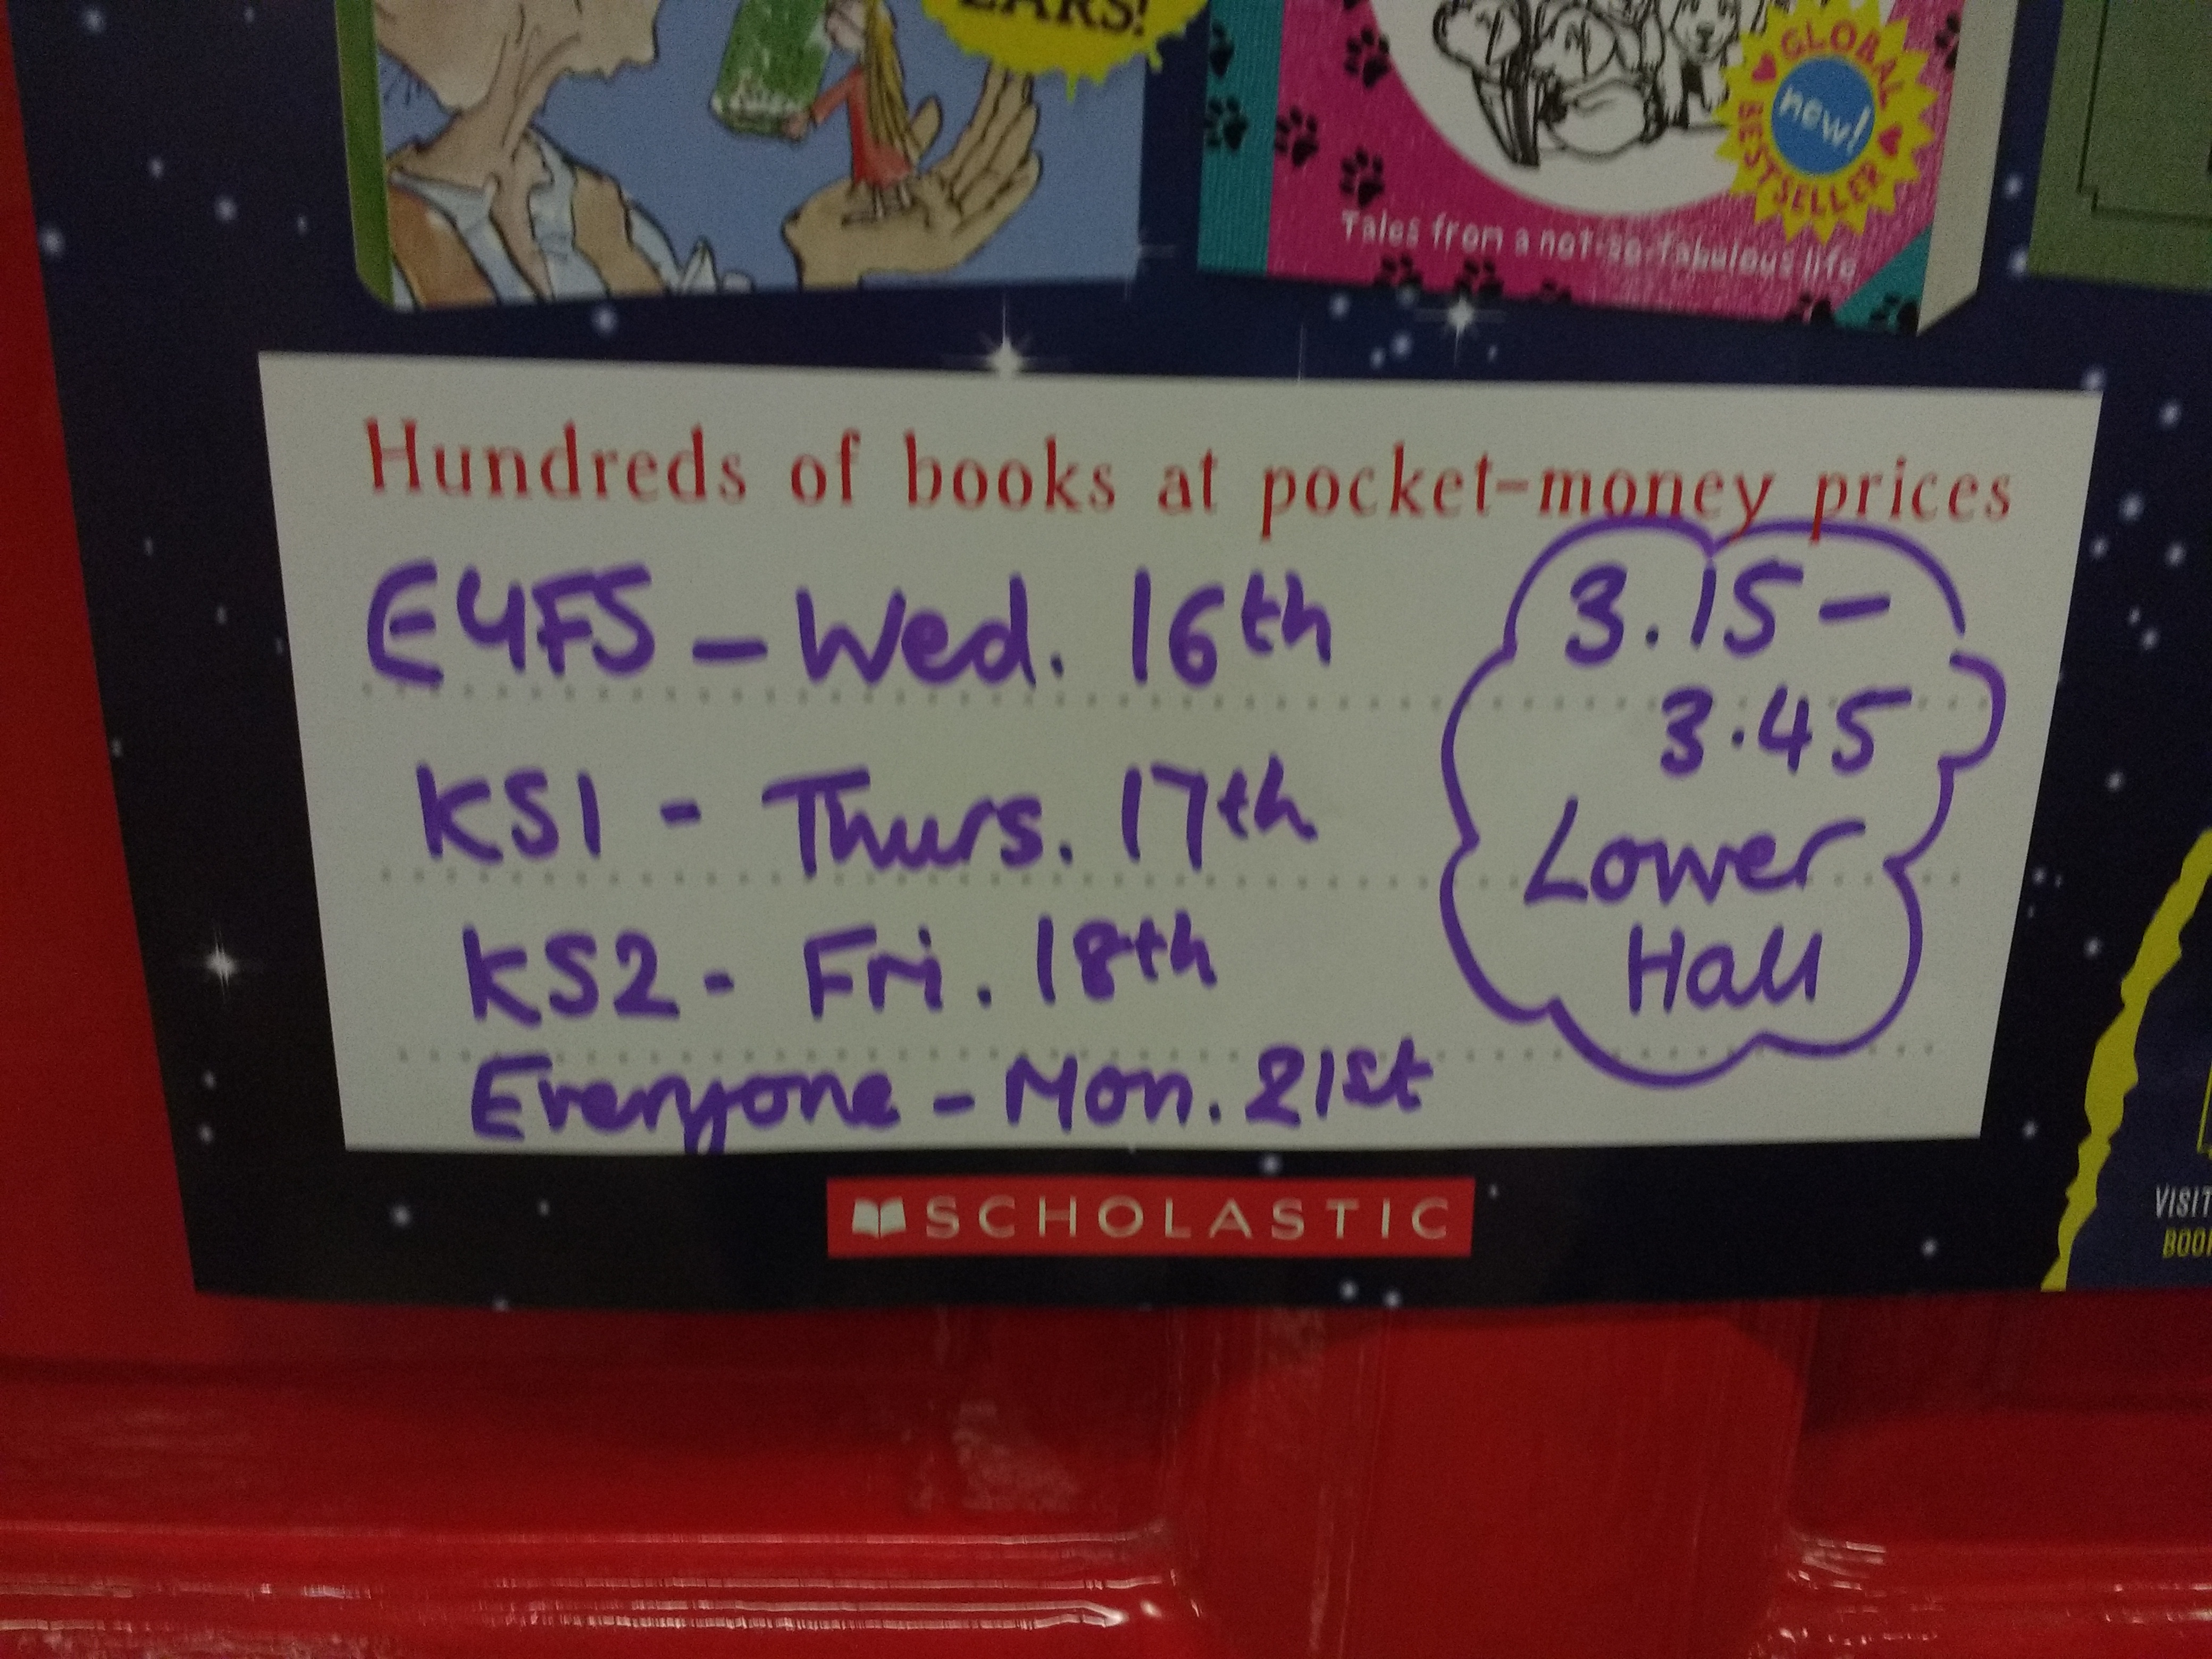 EARS!
GLOBAL
new!
BESTSELLER
Tales from a not-so-fabulous life
Hundreds of books at pocket-money prices
EYFS - Wed. 16th
KS1 - Thurs. 17th
KS2 - Fri. 18th
Everyone - Mon. 21st
3.15 -
3.45
Lower
Hall
SCHOLASTIC
VISIT